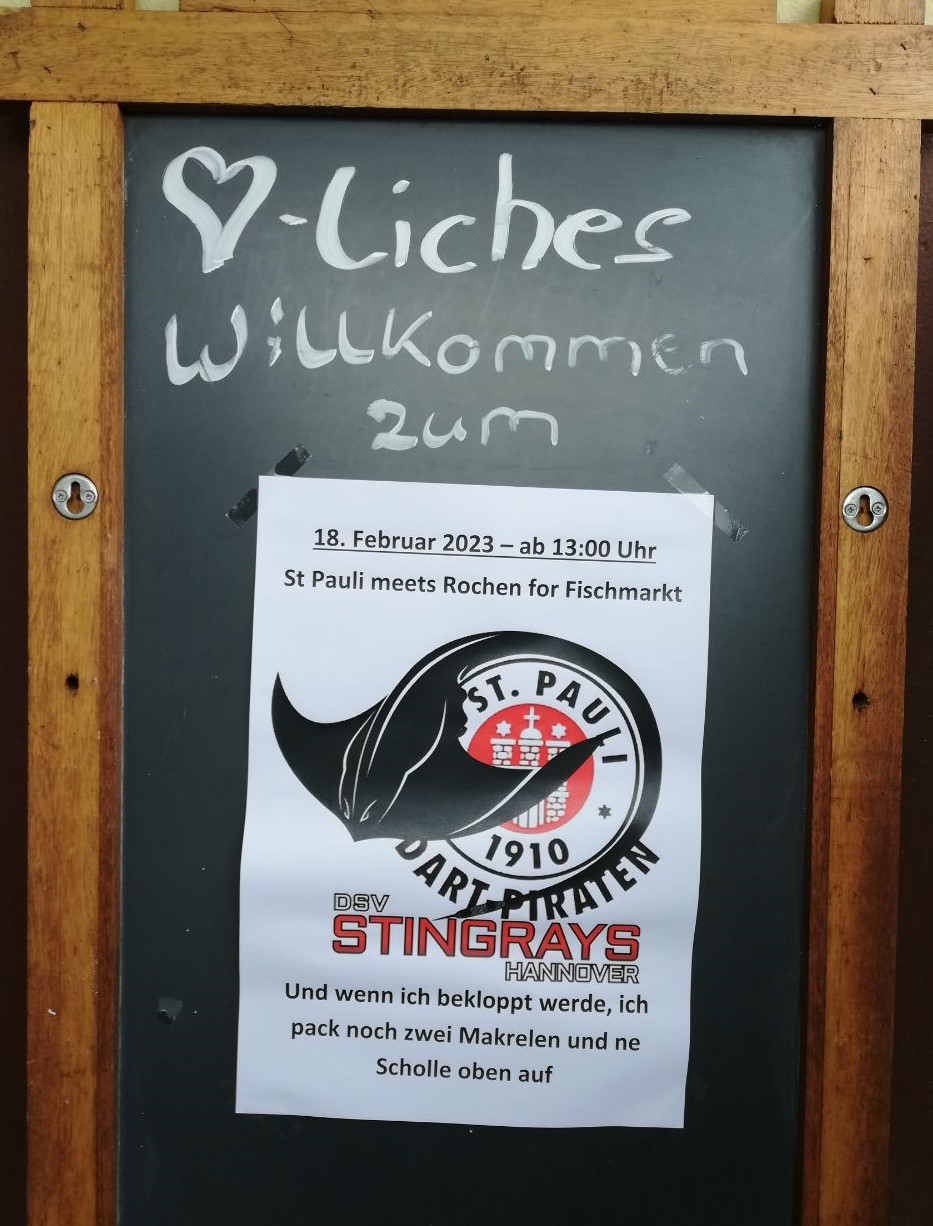 ♡-liches
Willkommen
zum
18. Februar 2023 – ab 13:00 Uhr
St Pauli meets Rochen for Fischmarkt
ST. PAULI
1910
DART-PIRATEN
DSV
STINGRAYS
HANNOVER
Und wenn ich bekloppt werde, ich
pack noch zwei Makrelen und ne
Scholle oben auf